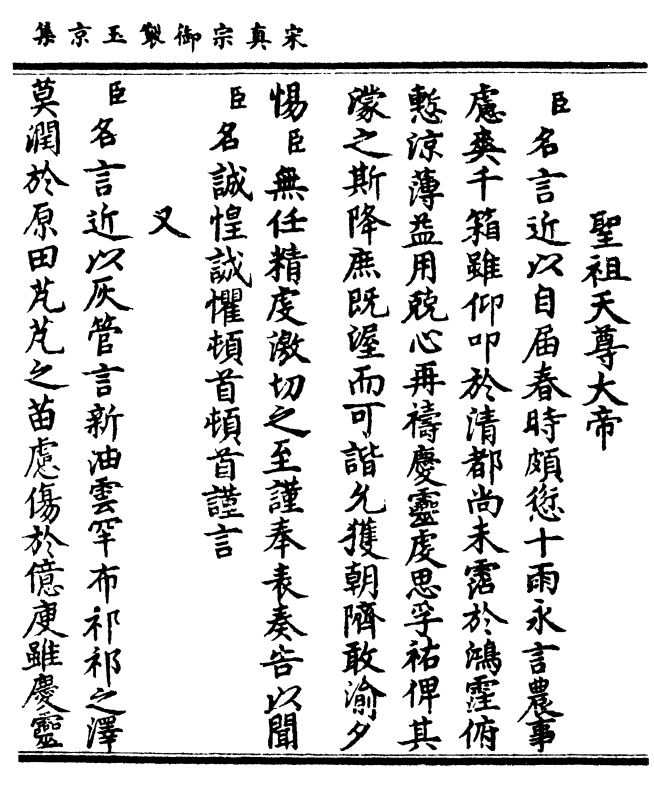 宋真宗御製玉京集
聖祖天尊大帝
臣名言近以自屆春時頗愆十雨永言農事
慮爽千箱雖仰叩於清都尚未霑於鴻霔俯
慙涼薄益用兢心再禱慶靈虔思孚祐俾其
濛之斯降庶既渥而可諧允獲朝隮敢渝夕
惕臣無任精虔激切之至謹奉表奏告以聞
臣名誠惶誠懼頓首頓首謹言
又
臣名言近以灰管言新油雲罕布祁祁之澤
莫潤於原田芃芃之苗慮傷於億庾雖慶靈